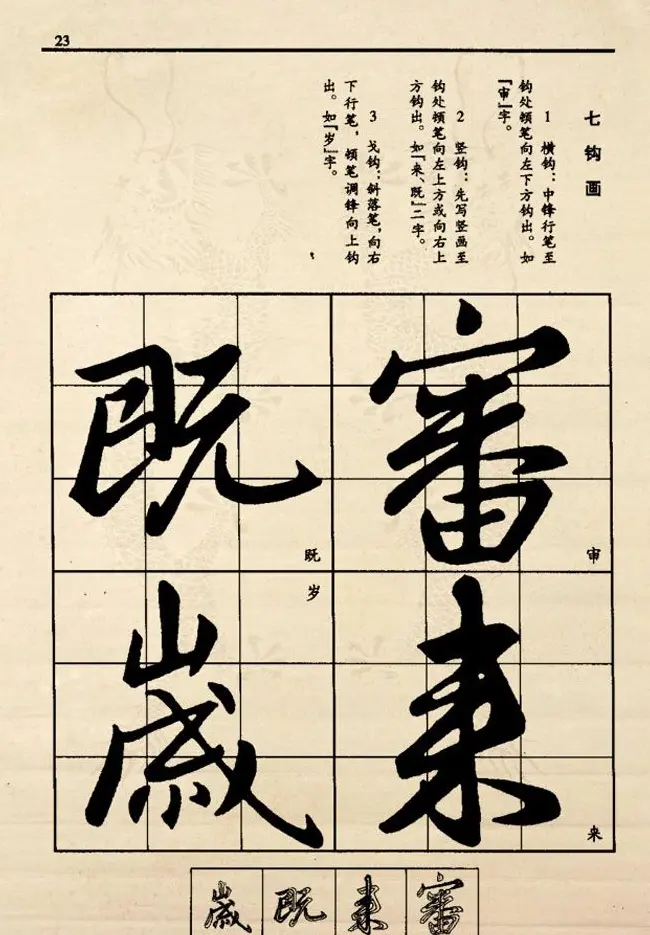 23
七 钩 画
1 横钩：中锋行笔至
钩处顿笔向左下方钩出。如
“审”字。
2 竖钩：先写竖画至
钩处顿笔向左上方或向右上
方钩出。如“来、既”二字。
3 戈钩：斜落笔，向右
下行笔，顿笔调锋向上钩
出。如“岁”字。
審
审
来
来
既
既
歳
岁
審
来
既
歳